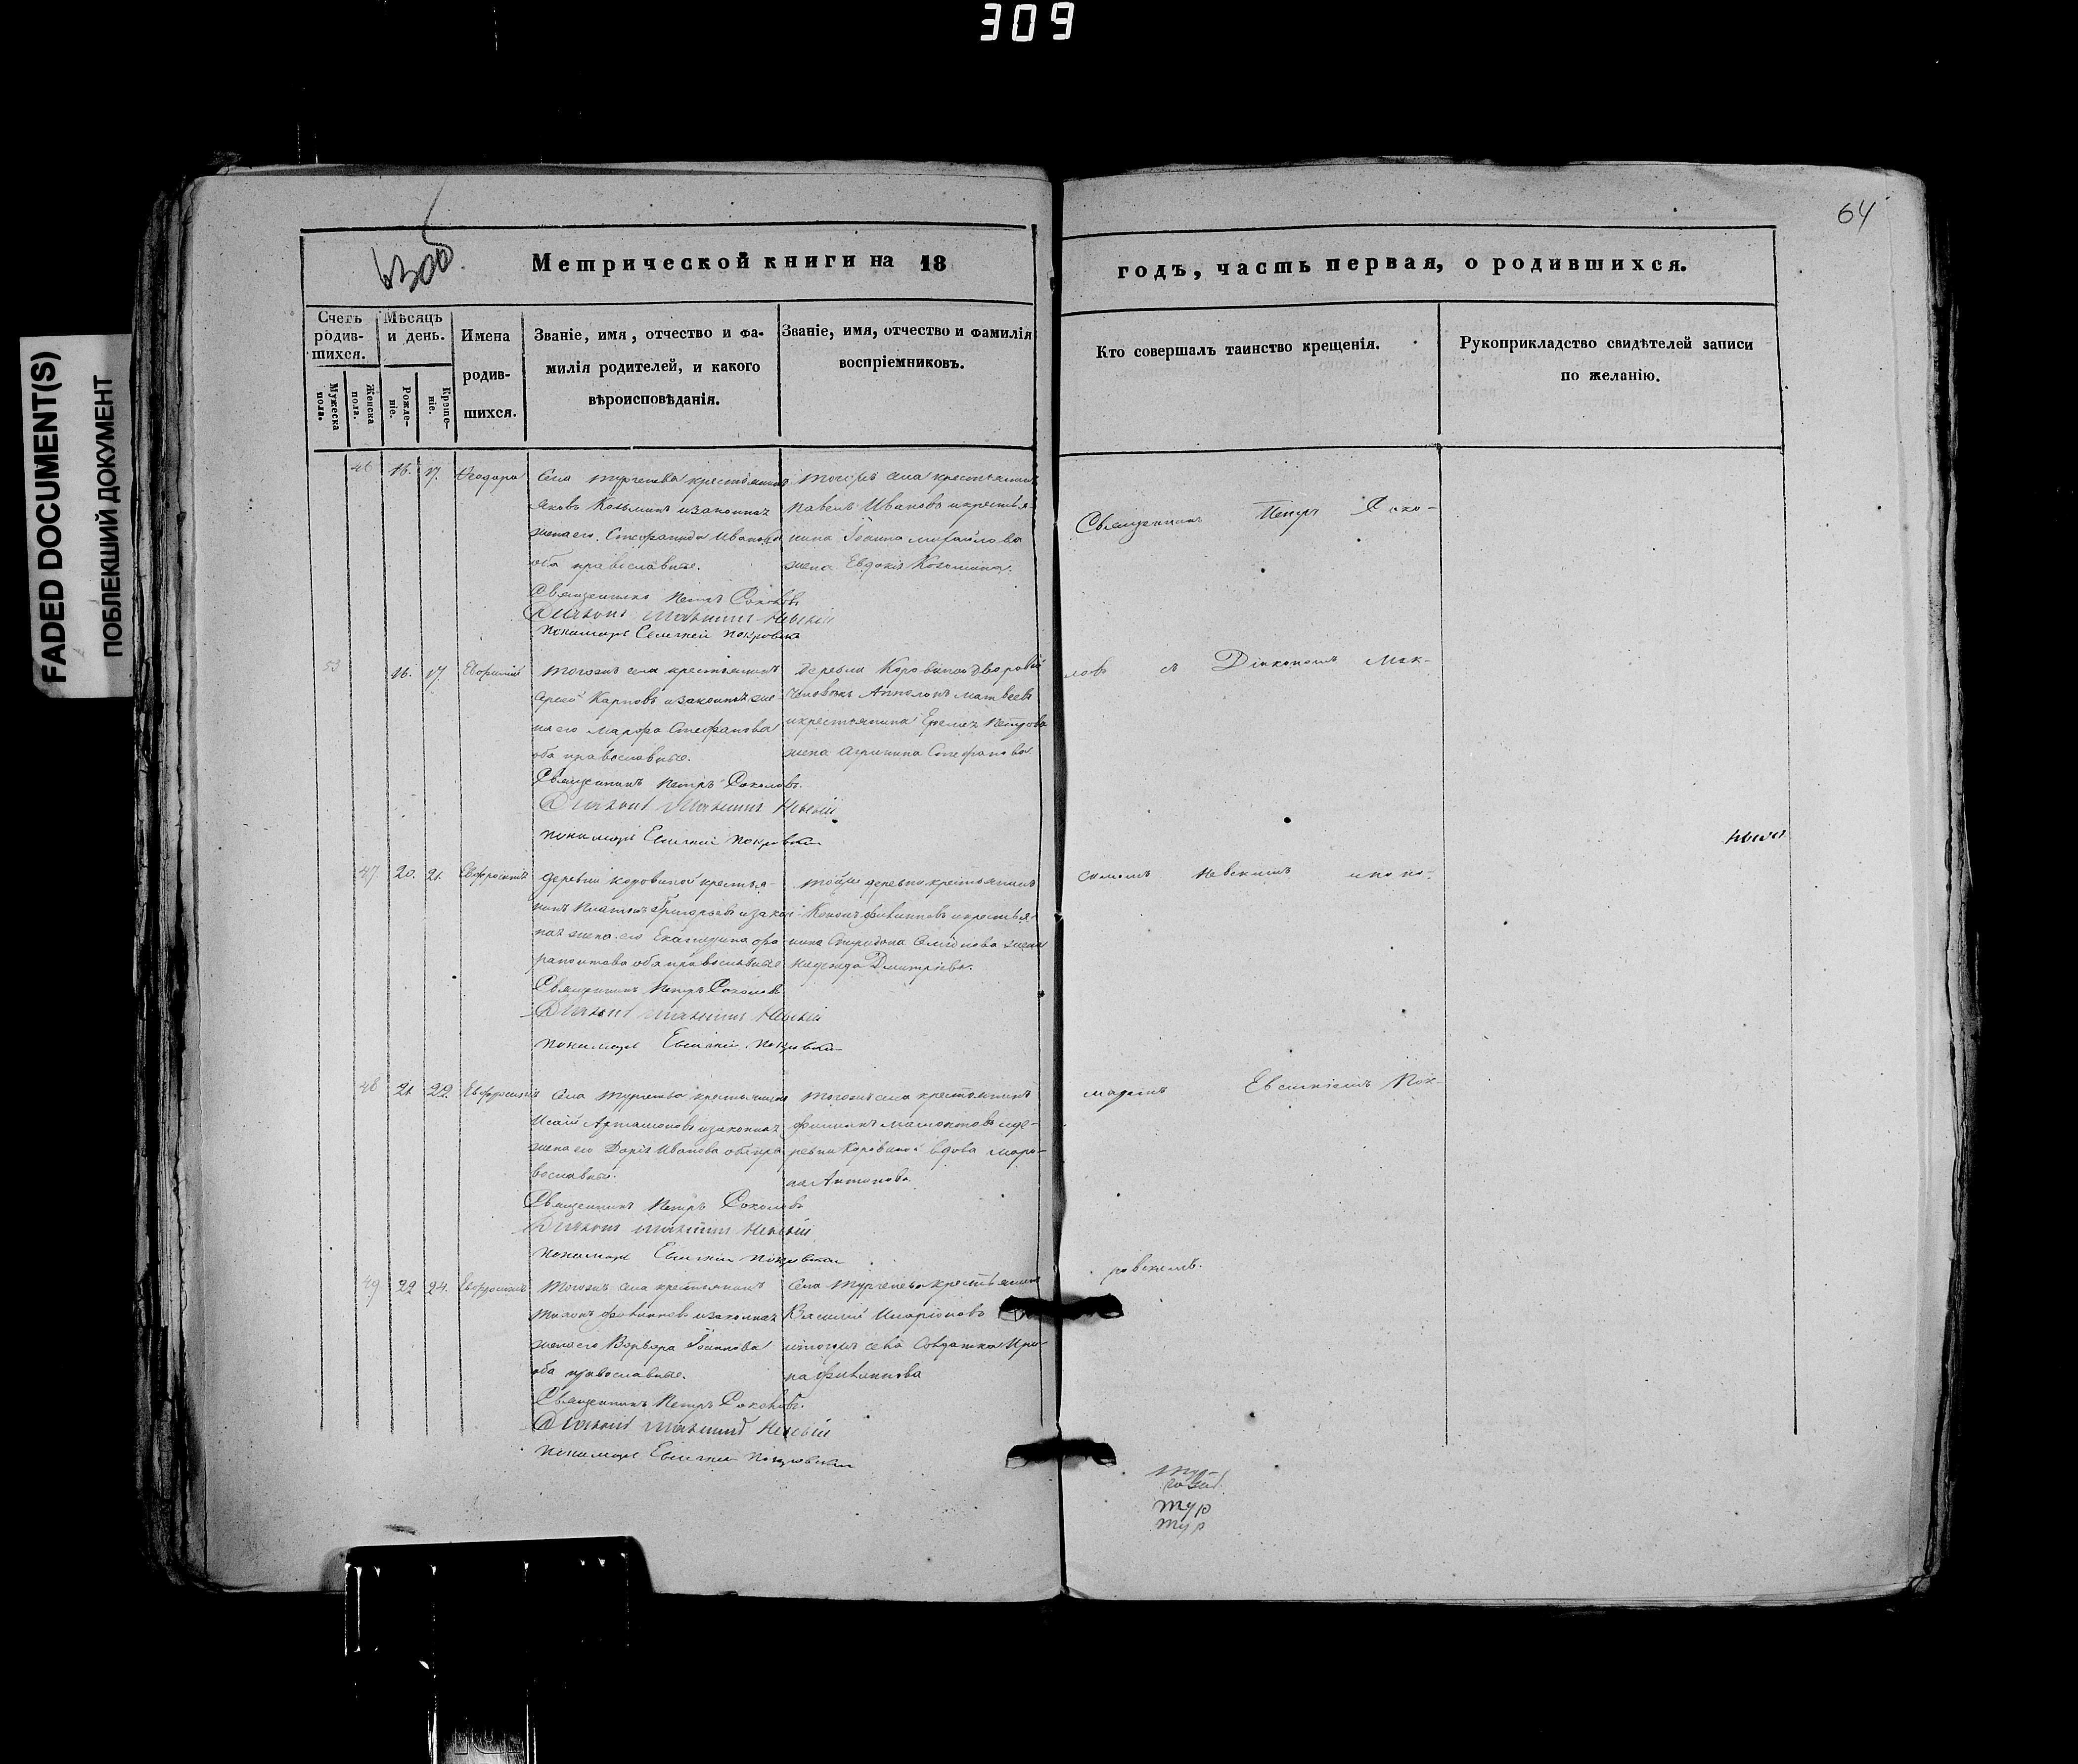 309
FADED DOCUMENT(S)
ПОБЛЕКШИЙ ДОКУМЕНТ
64
Метрической книги на 18
годъ, часть первая, о родившихся.
Счетъ родившихся.
Мужеска пола.
Женска пола.
Мѣсяцъ и день.
Рожденіе.
Крещеніе.
Имена родившихся.
Званіе, имя, отчество и фамилія родителей, и какого вѣроисповѣданія.
Званіе, имя, отчество и фамилія воспріемниковъ.
Кто совершалъ таинство крещенія.
Рукоприкладство свидѣтелей записи по желанію.
46 16. 17. Ѳеодора
Села Тургенева крестьянинъ
Яковъ Козьминъ и законная
жена его Стефанида Иванова
оба православные.
Священникъ Петръ Соколовъ
Діаконъ Максимъ Невскій
Пономарь Евгеній Покровскій
Тогожъ села крестьянинъ
Павелъ Ивановъ и крестья-
нина Іоанна Михайлова
жена Евдокія Козьмина.
53 16. 17. Евфимій
Тогожъ села крестьянинъ
Карповъ и законная же-
на его Марфа Стефанова
оба православные.
Священникъ Петръ Соколовъ.
Діаконъ Максимъ Невскій
Пономарь Евгеній Покровскій
Деревни Коровиной дворовый
человѣкъ Апполонъ Матвеевъ
и крестьянина Еремея Петрова
жена Агрипина Стефанова.
47 20. 21. Евфросинія
Деревни Коровиной крестья-
нинъ Платонъ Григорьевъ и закон-
ная жена его Екатерина Фе-
рапонтова оба православные
Священникъ Петръ Соколовъ
Діаконъ Максимъ Невскій
Пономарь Евгеній Покровскій
Тойже деревни крестьянинъ
Кононъ Филипповъ и крестья-
нина Спиридона Семенова жена
Надежда Дмитріева.
48 21. 22. Евфросинія
Села Тургенева крестьянинъ
Исаій Артамоновъ и законная
жена его Дарія Иванова оба пра-
вославные.
Священникъ Петръ Соколовъ
Діаконъ Максимъ Невскій
Пономарь Евгеній Покровскій
Тогожъ села крестьянинъ
Филипъ и де-
ревни Коровиной вдова Марі-
на Антонова.
49 22 24. Евфросинія
Тогожъ села крестьянинъ
Филипповъ и законная
жена его Варвара Іоаннова
оба православные.
Священникъ Петръ Соколовъ.
Діаконъ Максимъ Невскій
Пономарь Евгеній Покровскій
Села Тургенева крестьянинъ
Василій Иларіоновъ
и тогожъ села солдатка Ири-
на Филиппова
Священникъ Петръ Соко-
ловъ съ Діакономъ Мак-
симомъ Невскимъ и поно-
маремъ Евгеніемъ Пок-
ровскимъ.
Тур
Тур